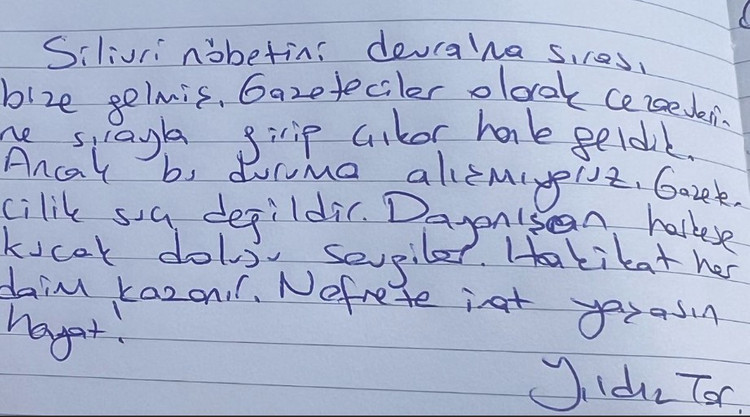 Silivri nöbetini devralma sırası
bize gelmiş. Gazeteciler olarak cezaevleri-
ne sırayla girip çıkar hale geldik.
Ancak bu duruma alışmıyoruz. Gazete-
cilik suç değildir. Dayanışan herkese
kucak dolusu sevgiler. Hakikat her
daim kazanır. Nefrete inat yaşasın
hayat!
Yıldız Tar